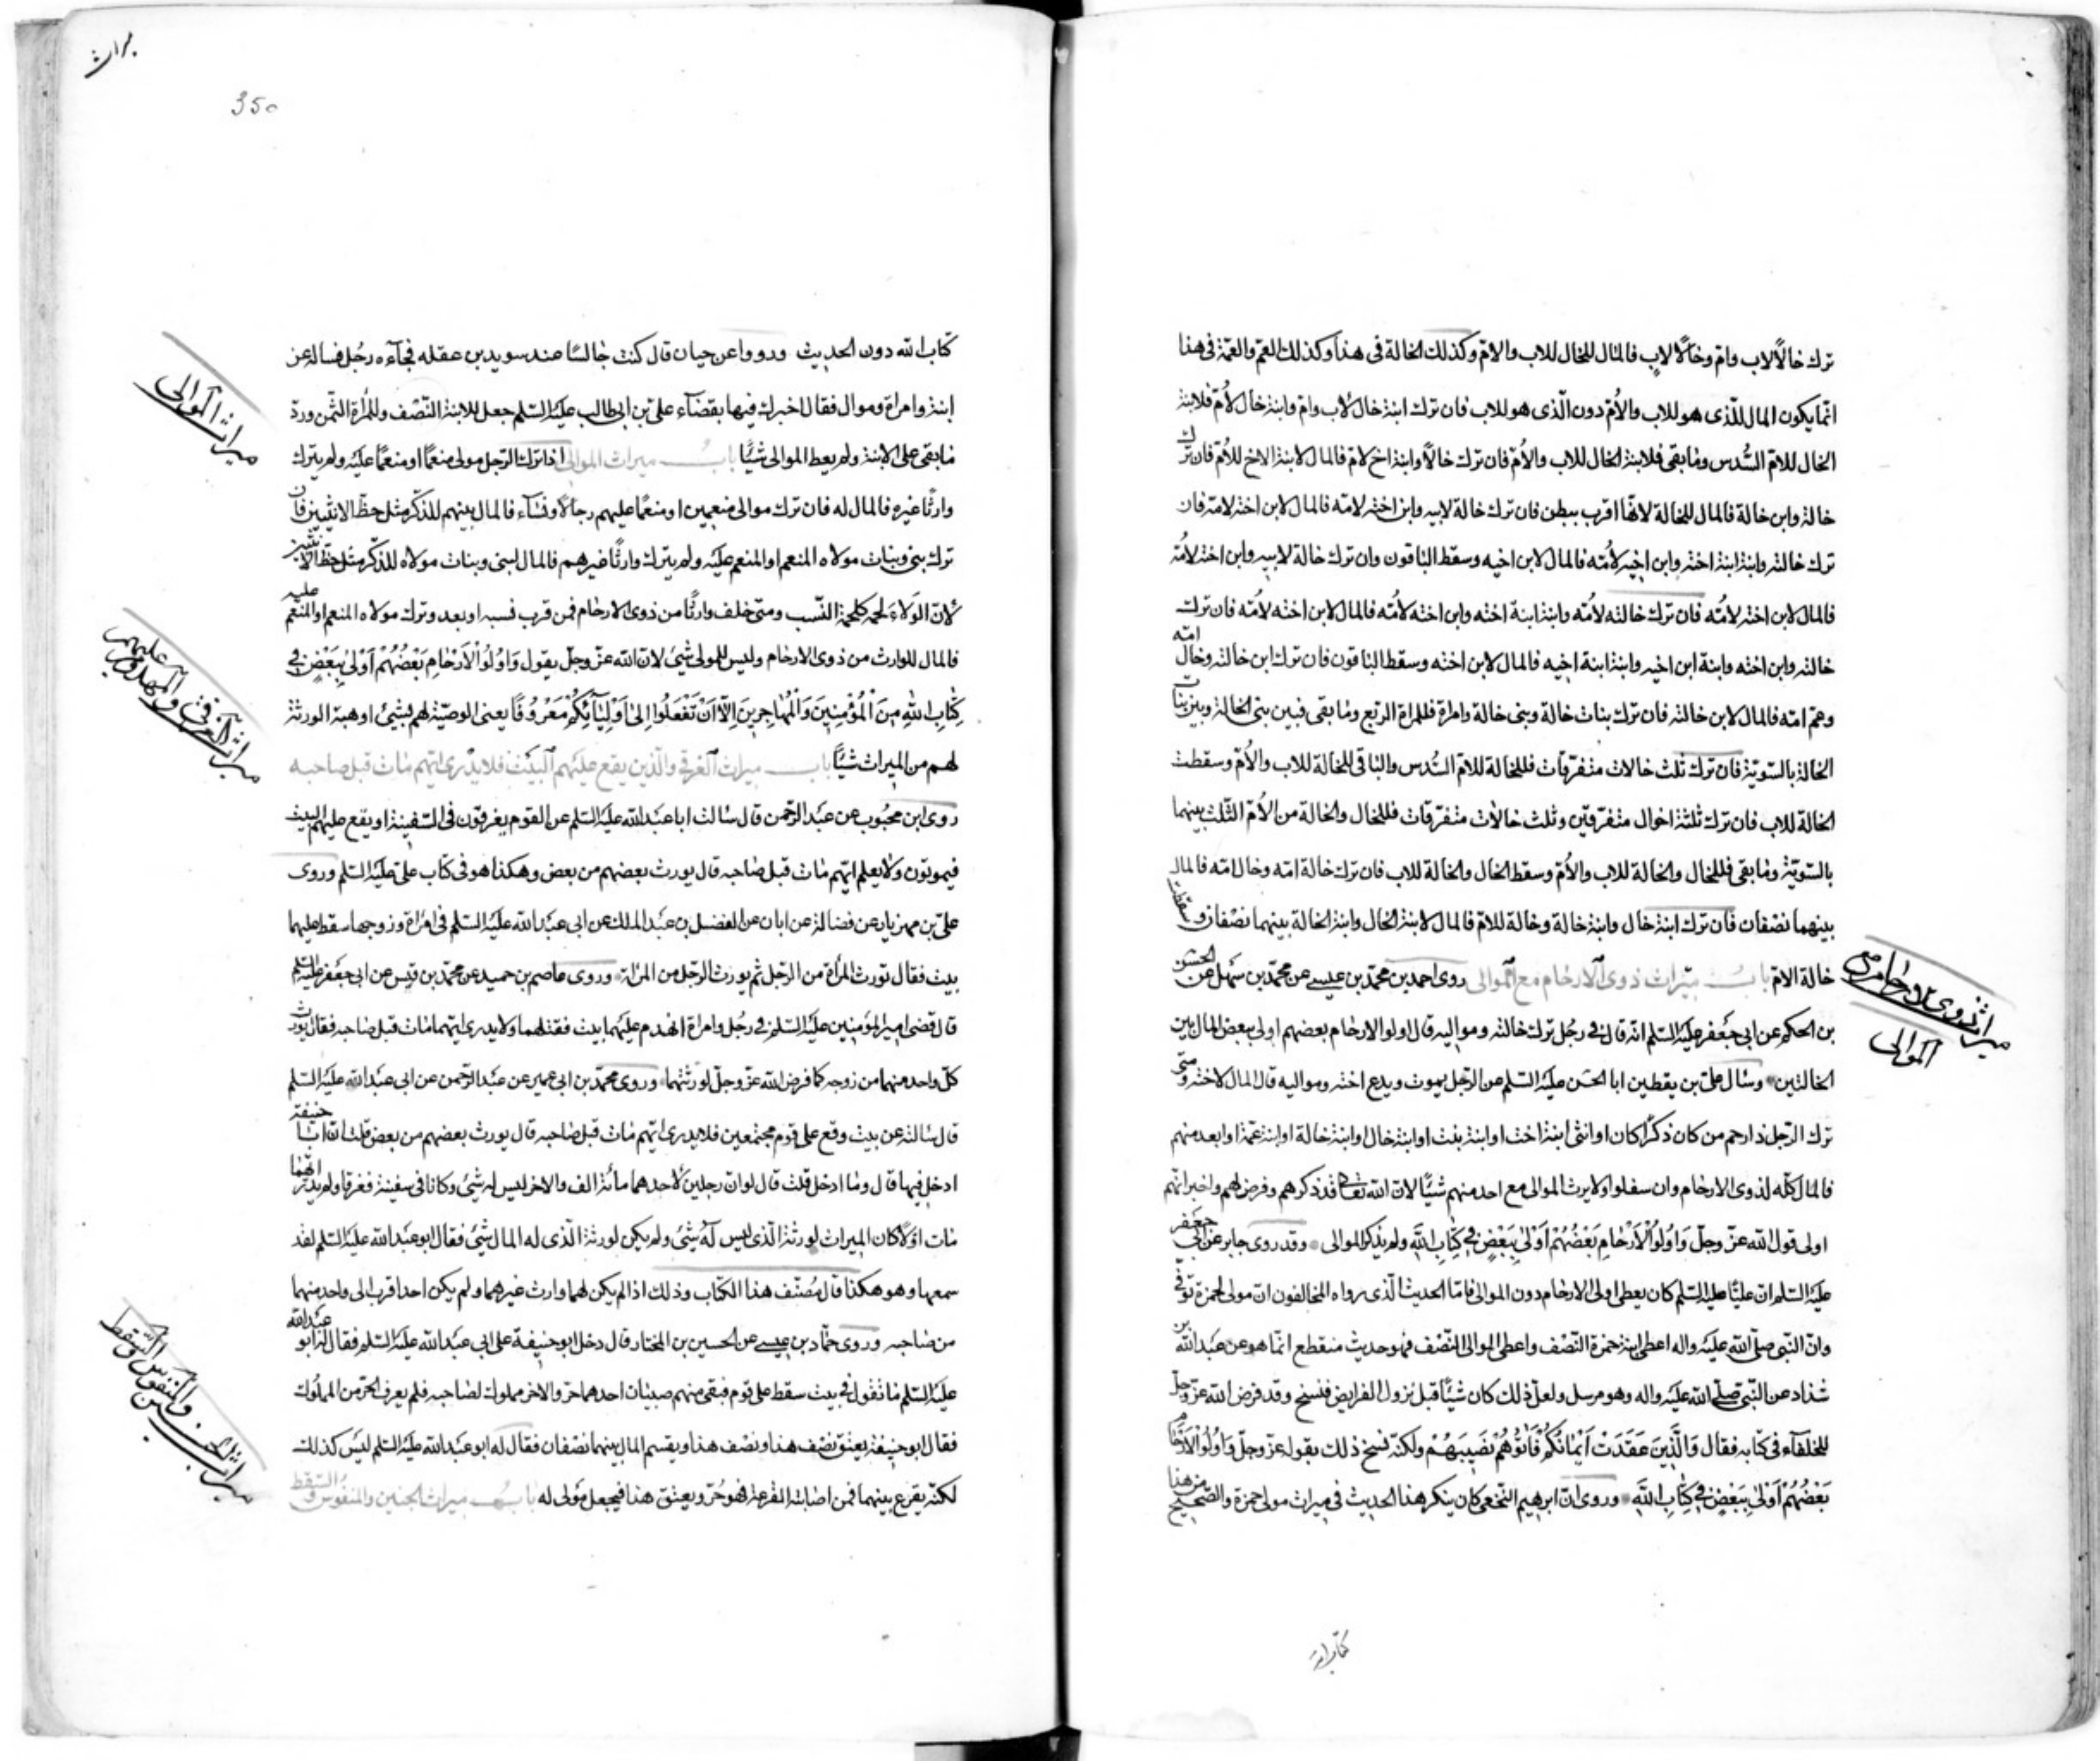 ترك خالاً لاب وامّ وخالاً لاب فالمال للخال للاب والامّ وكذلك الخالة فى هذا وكذلك العمّ والعمّة فى هذا
انّما يكون المال للّذى هو للاب والأمّ دون الّذى هو للاب فان ترك ابنة خال لاب وامّ وابنة خال لأمّ فلابنة
الخال للامّ السُّدس وما بقى فلابنة الخال للاب والأمّ فان ترك خالاً وابنة اخ لامّ فالمال لابنة الاخ للأمّ فان ترك
خالة وابن خالة فالمال للخالة لانّها اقرب ببطن فان ترك خالة لابيه وابن اخته لامّه فالمال لابن اخته لامّه فان
ترك خالته وابنة ابنة اخته وابن اخيه لأمّه فالمال لابن اخيه وسقط الباقون وان ترك خالة لابيه وابن اخته لأمّه
فالمال لابن اخته لأمّه فان ترك خالته لأمّه وابنة ابنة اخته وابن اخته لأمّه فالمال لابن اخته لأمّه فان ترك
خالته وابن اخته وابنة ابن اخيه وابنة ابنة اخيه فالمال لابن اخته وسقط الباقون فان ترك ابن خالته وخال امّه
وعمّ امّه فالمال لابن خالته فان ترك بنات خالة وبنى خالة وامراة فللمراة الربع وما بقى فبين بنى الخالة وبين بنات
الخالة بالسّويّة فان ترك ثلث خالات متفرّقات فللخالة للامّ السُّدس والباقى للخالة للاب والأمّ وسقطت
الخالة للاب فان ترك ثلثة اخوال متفرّقين وثلث خالات متفرّقات فللخال والخالة من الأمّ الثّلث بينهما
بالسّويّة وما بقى فللخال والخالة للاب والأمّ وسقط الخال والخالة للاب فان ترك خالة امّه وخال امّه فالمال
بينهما نصفان فان ترك ابنة خال وابنة خالة وخالة للامّ فالمال لابنة الخال وابنة الخالة بينهما نصفان وسقطت
خالة الامّ باب ميراث ذوى الارحام مع الموالى روى احمد بن محمّد بن عيسى عن محمّد بن سهل عن الحسن
بن الحكم عن ابى جعفر عليه السّلم انّه قال فى رجل ترك خالتيه ومواليه قال اولو الارحام بعضهم اولى ببعض المال بين
الخالتين وسال علىّ بن يقطين ابا الحسن عليه السّلم عن الرّجل يموت ويدع اخته ومواليه قال المال لاخته ومتى
ترك الرّجل ذا رحم من كان ذكراً كان او انثى ابنة اخت او ابنة بنت او ابنة خال او ابنة خالة او ابنة عمّة او ابعد منهم
فالمال كلّه لذوى الارحام وان سفلوا ولا يرث الموالى مع احد منهم شيئًا لانّ الله تعالى قد ذكرهم وفرض لهم واخبر انّهم
اولى قول الله عزّ وجلّ وَاُولُوا الْاَرْحامِ بَعْضُهُمْ اَوْلى بِبَعْضٍ فى كِتابِ اللهِ ولم يذكر الموالى وقد روى جابر عن ابى جعفر
عليه السّلم انّ عليًّا عليه السّلم كان يعطى اولى الارحام دون الموالى فامّا الحديث الّذى رواه المخالفون انّ مولى لحمزة توفّى
وانّ النّبى صلّى الله عليه واله اعطى ابنة حمزة النّصف واعطى الموالى النّصف فهو حديث منقطع انّما هو عن عبد الله بن
شدّاد عن النّبىّ صلّى الله عليه واله وهو مرسل ولعلّ ذلك كان شيئًا قبل نزول الفرايض فنسخ وقد فرض الله عزّ وجلّ
للحلفآء فى كتابه فقال وَالَّذينَ عَقَدَتْ اَيْمانُكُمْ فَآتُوهُمْ نَصيبَهُمْ ولكنّه نسخ ذلك بقوله عزّ وجلّ وَاُولُوا الْاَرْحامِ
بَعْضُهُمْ اَوْلى بِبَعْضٍ فى كِتابِ اللهِ وروى انّ ابرهيم النّخعى كان ينكر هذا الحديث فى ميراث مولى حمزة والصّحيح من هذا
ميراث ذوى الارحام مع
الموالى
كتاب الله
ميراث
350
كتاب الله دون الحديث ورووا عن حيان قال كنت جالسًا عند سويد بن عقله فجآءه رجُل فساله عن
ابنة وامراة وموال فقال اخبرك فيها بقضآء علىّ بن ابى طالب عليه السّلم جعل للابنة النّصف وللمراة الثّمن وردّ
ما بقى على الابنة ولم يعط الموالى شيئًا باب ميراث الموالى اذا ترك الرّجل مولى منعمًا او منعمًا عليه ولم يترك
وارثًا غيره فالمال له فان ترك موالى منعمين او منعمًا عليهم رجالاً ونسآء فالمال بينهم للذّكر مثل حظّ الانثيين فان
ترك بنى وبنات مولاه المنعم او المنعم عليه ولم يترك وارثًا غيرهم فالمال لبنى وبنات مولاه للذّكر مثل حظّ الانثيين
لانّ الوَلاءَ لحمة كلحمة النّسب ومتى خلف وارثًا من ذوى الارحام فمن قرب نسبه او بعد وترك مولاه المنعم او المنعم عليه
فالمال للوارث من ذوى الارحام وليس للمولى شىء لانّ الله عزّ وجلّ يقول وَاُولُوا الْاَرْحامِ بَعْضُهُمْ اَوْلى بِبَعْضٍ فى
كِتابِ اللهِ مِنَ الْمُؤْمِنينَ وَالْمُهاجِرينَ اِلّا اَنْ تَفْعَلُوا اِلى اَوْلِيآئِكُمْ مَعْرُوفًا يعنى الوصيّة لهم بشىء او هبة الورثة
لهم من الميراث شيئًا باب ميراث الغرقى والّذين يقع عليهم البيت فلا يدرى ايّهم مات قبل صاحبه
روى ابن محبُوب عن عبد الرّحمن قال سالت ابا عبد الله عليه السّلم عن القوم يغرقون فى السّفينة او يقع عليهم البيت
فيموتون ولا يعلم ايّهم مات قبل صاحبه قال يورث بعضهم من بعض وهكذا هو فى كتاب علىّ عليه السّلم وروى
علىّ بن مهزيار عن فضالة عن ابان عن الفضل بن عبد الملك عن ابى عبد الله عليه السّلم فى امراة وزوجها سقط عليهما
بيت فقال تورث المراة من الرّجل ثم يورث الرّجل من المراة وروى عاصم بن حميد عن محمّد بن قيس عن ابى جعفر عليه السّلم
قال قضى امير المؤمنين عليه السّلم فى رجُل وامراة انهدم عليهما بيت فقتلهما ولا يدرى ايّهما مات قبل صاحبه فقال يورث
كلّ واحد منهما من زوجه كما فرض الله عزّ وجلّ لورثتهما وروى محمّد بن ابى عمير عن عبد الرّحمن عن ابى عبد الله عليه السّلم
قال سالته عن بيت وقع على قوم مجتمعين فلا يدرى ايّهم مات قبل صاحبه قال يورث بعضهم من بعض قلت انّ ابا حنيفة
ادخل فيها قال وما ادخل قلت قال لو انّ رجلين لاحدهما مائة الف والاخر ليس له شىء وكانا فى سفينة فغرقا ولم يدر ايّهما
مات اوّلاً كان الميراث لورثة الّذى ليس له شىء ولم يكن لورثة الّذى له المال شىء فقال ابو عبد الله عليه السّلم لقد
سمعها وهو هكذا قال مُصنّف هذا الكتاب وذلك اذا لم يكن لهما وارث غيرهما ولم يكن احد اقرب الى واحد منهما
من صاحبه وروى حمّاد بن عيسى عن الحسين بن المختار قال دخل ابو حنيفة على ابى عبد الله عليه السّلم فقال له ابو عبد الله
عليه السّلم ما تقول فى بيت سقط على قوم فبقى منهم صبيان احدهما حرّ والاخر مملوك لصاحبه فلم يعرف الحرّ من المملُوك
فقال ابو حنيفة يعتق نصف هذا ونصف هذا ويقسم المال بينهما نصفان فقال له ابو عبد الله عليه السّلم ليس كذلك
لكنّه يقرع بينهما فمن اصابته القرعة فهو حُرّ ويعتق هذا فيجعل مَولى له باب ميراث الجنين والمنفوس والسّقط
ميراث الموالى
ميراث الغرقى والمهدوم عليهم
ميراث الجنين والمنفوس والسقط